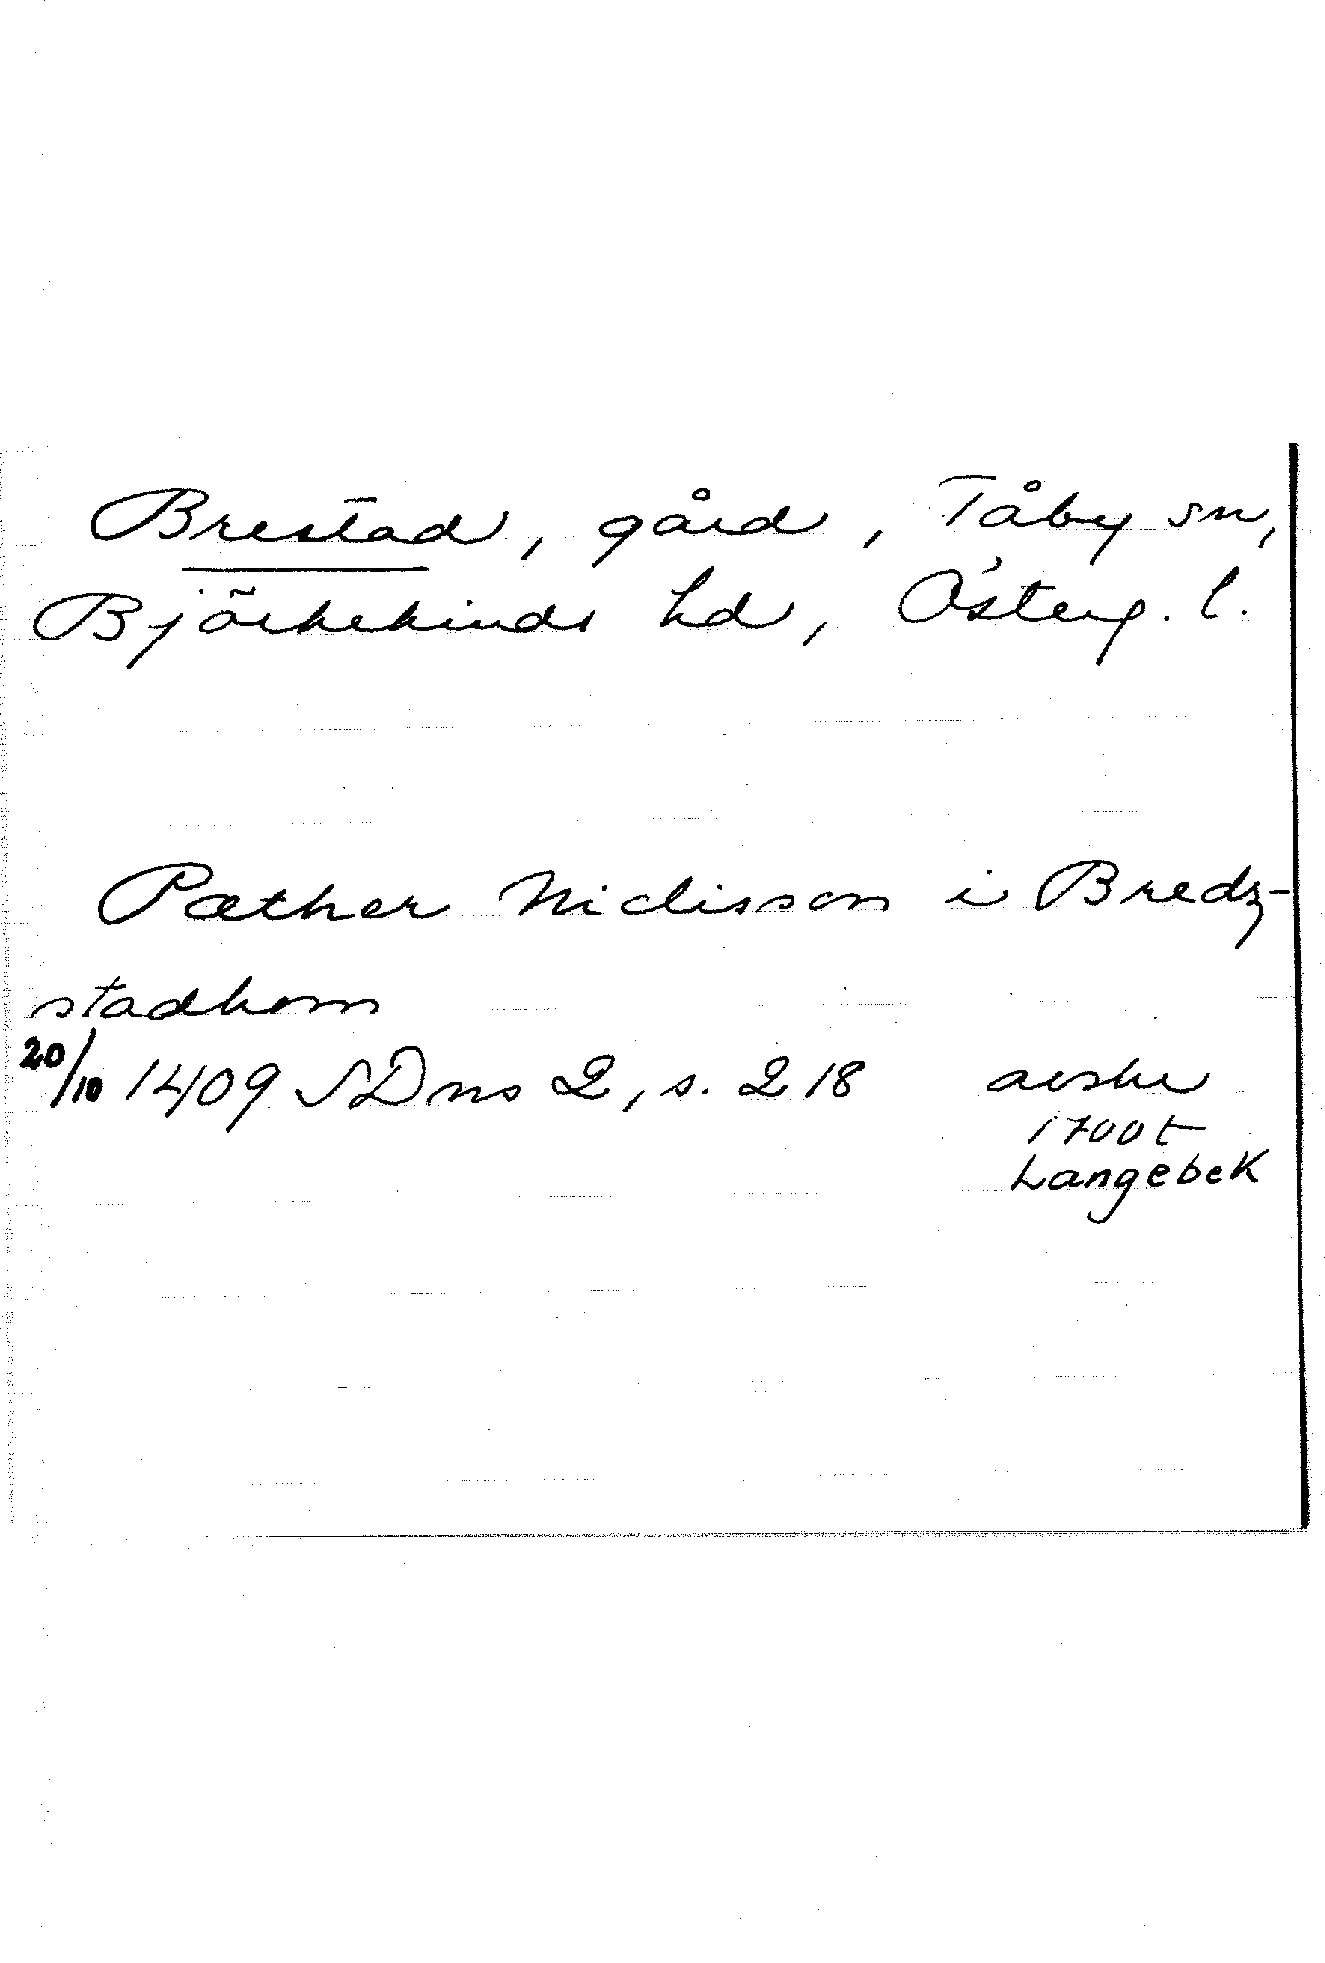 Brestad, gård, Tåby sn,
Björkekinds hd, Österg. l.
Pæther Niclisson i Bredz-
stadhom
20/10 1409 SDns 2, s. 218 avskr
1700t
Langebek